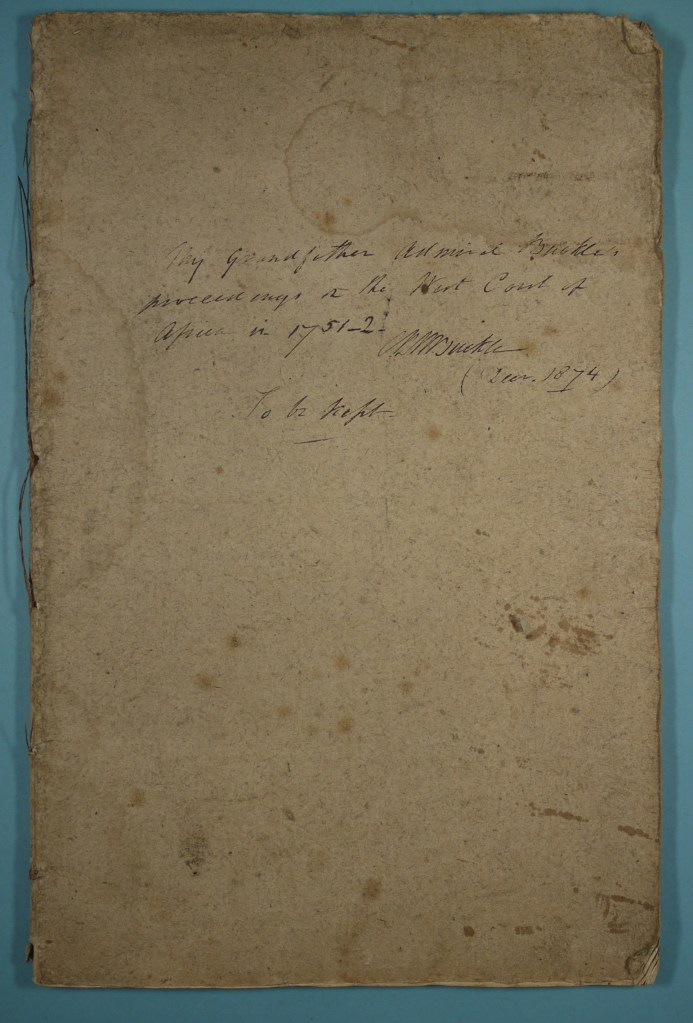 My Grandfather Admiral Buckle's
proceedings on the West Coast of
Africa in 1751-2.
Buckle
(Decr. 1874)
To be kept.